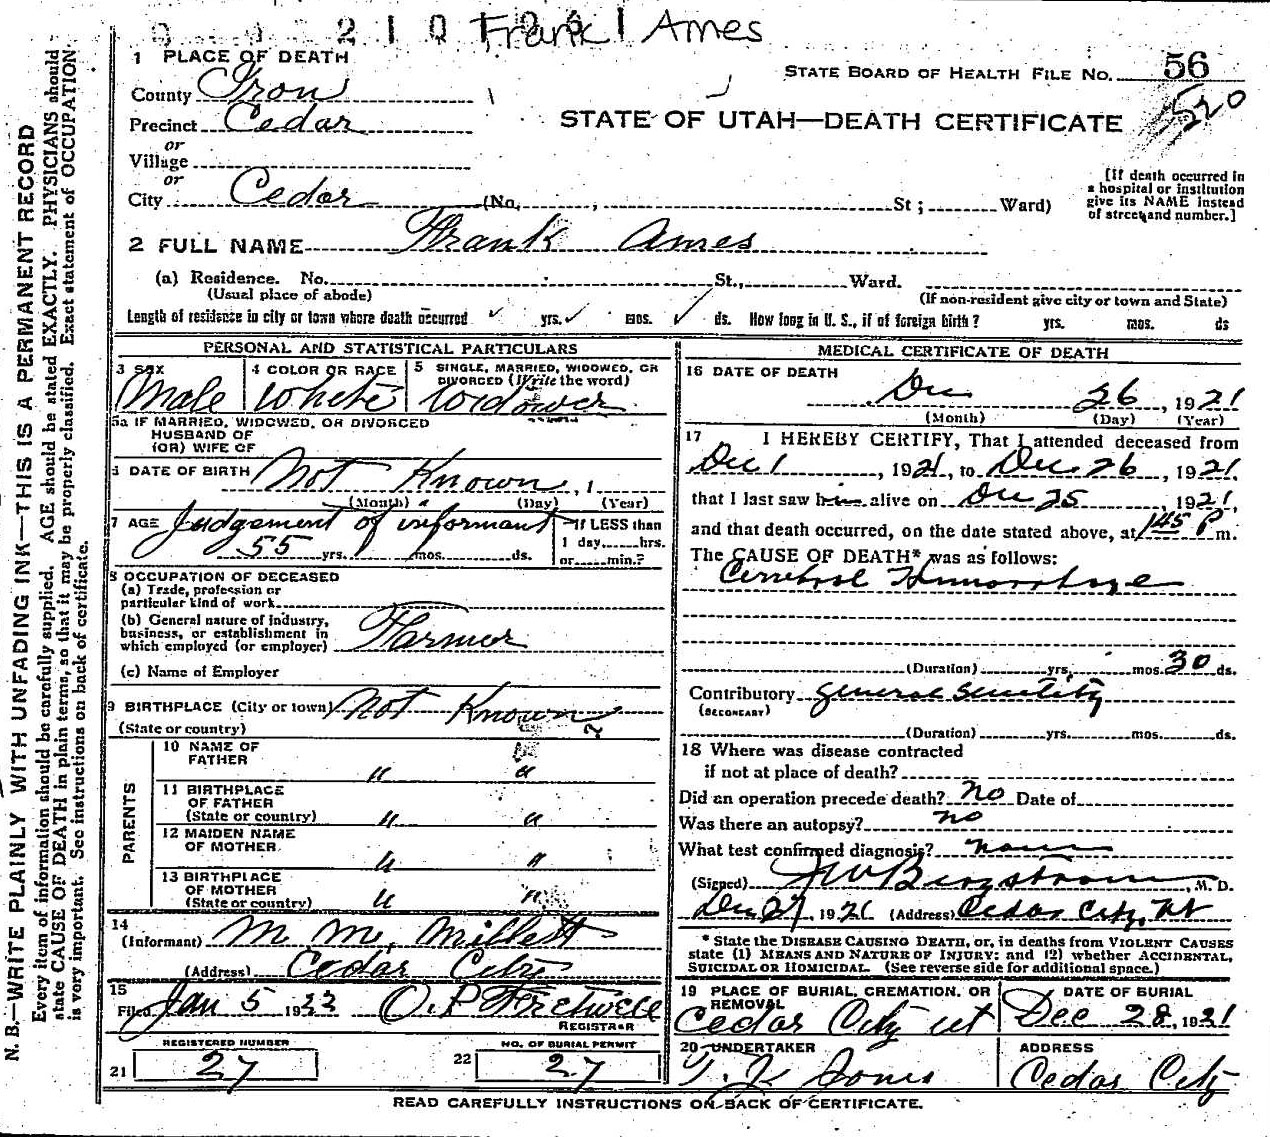 2 1 0 Frank Ames
1 PLACE OF DEATH
STATE BOARD OF HEALTH FILE No. 56
County Iron
520
Precinct Cedar
STATE OF UTAH—DEATH CERTIFICATE
or
Village
or
City Cedar (No. , St ; Ward)
[If death occurred in
a hospital or institution
give its NAME instead
of street and number.]
2 FULL NAME Frank Ames
(a) Residence. No. St., Ward.
(Usual place of abode) (If non-resident give city or town and State)
Length of residence in city or town where death occurred yrs. mos. ds. How long in U. S., if of foreign birth? yrs. mos. ds
PERSONAL AND STATISTICAL PARTICULARS
3 SEX Male
4 COLOR OR RACE White
5 SINGLE, MARRIED, WIDOWED, OR
DIVORCED (Write the word)
Widower
5a IF MARRIED, WIDOWED, OR DIVORCED
HUSBAND OF
(OR) WIFE OF
6 DATE OF BIRTH Not Known , 1
(Month) (Day) (Year)
7 AGE Judgement of informant
55 yrs. mos. ds.
If LESS than
1 day, hrs.
or min.?
8 OCCUPATION OF DECEASED
(a) Trade, profession or
particular kind of work
(b) General nature of industry,
business, or establishment in
which employed (or employer) Farmer
(c) Name of Employer
9 BIRTHPLACE (City or town) Not Known
(State or country)
PARENTS
10 NAME OF
FATHER " "
11 BIRTHPLACE
OF FATHER
(State or country) " "
12 MAIDEN NAME
OF MOTHER " "
13 BIRTHPLACE
OF MOTHER
(State or country) " "
14
(Informant) M. M. Millett
(Address) Cedar City
15
Filed Jan 5 1922 O. P. Fretwell
REGISTRAR
REGISTERED NUMBER
21 27
NO. OF BURIAL PERMIT
22 27
MEDICAL CERTIFICATE OF DEATH
16 DATE OF DEATH
Dec 26, 1921
(Month) (Day) (Year)
17 I HEREBY CERTIFY, That I attended deceased from
Dec 1, 1921, to Dec 26, 1921,
that I last saw him alive on Dec 25, 1921,
and that death occurred, on the date stated above, at 1 45 P m.
The CAUSE OF DEATH* was as follows:
Cerebral Hemorrhage
(Duration) yrs. mos. 30 ds.
Contributory general senility
(SECONDARY)
(Duration) yrs. mos. ds.
18 Where was disease contracted
if not at place of death?
Did an operation precede death? No Date of
Was there an autopsy? no
What test confirmed diagnosis? none
(Signed) J W Bergstrom, M. D.
Dec 27 1921 (Address) Cedar City, Ut
* State the DISEASE CAUSING DEATH, or, in deaths from VIOLENT CAUSES
state (1) MEANS AND NATURE OF INJURY; and (2) whether ACCIDENTAL,
SUICIDAL OR HOMICIDAL. (See reverse side for additional space.)
19 PLACE OF BURIAL, CREMATION, OR
REMOVAL
Cedar City ut
DATE OF BURIAL
Dec 28, 1921
20 UNDERTAKER
T. J. Jones
ADDRESS
Cedar City
READ CAREFULLY INSTRUCTIONS ON BACK OF CERTIFICATE.
N. B.—WRITE PLAINLY WITH UNFADING INK—THIS IS A PERMANENT RECORD
Every item of information should be carefully supplied. AGE should be stated EXACTLY. PHYSICIANS should
state CAUSE OF DEATH in plain terms, so that it may be properly classified. Exact statement of OCCUPATION
is very important. See instructions on back of certificate.